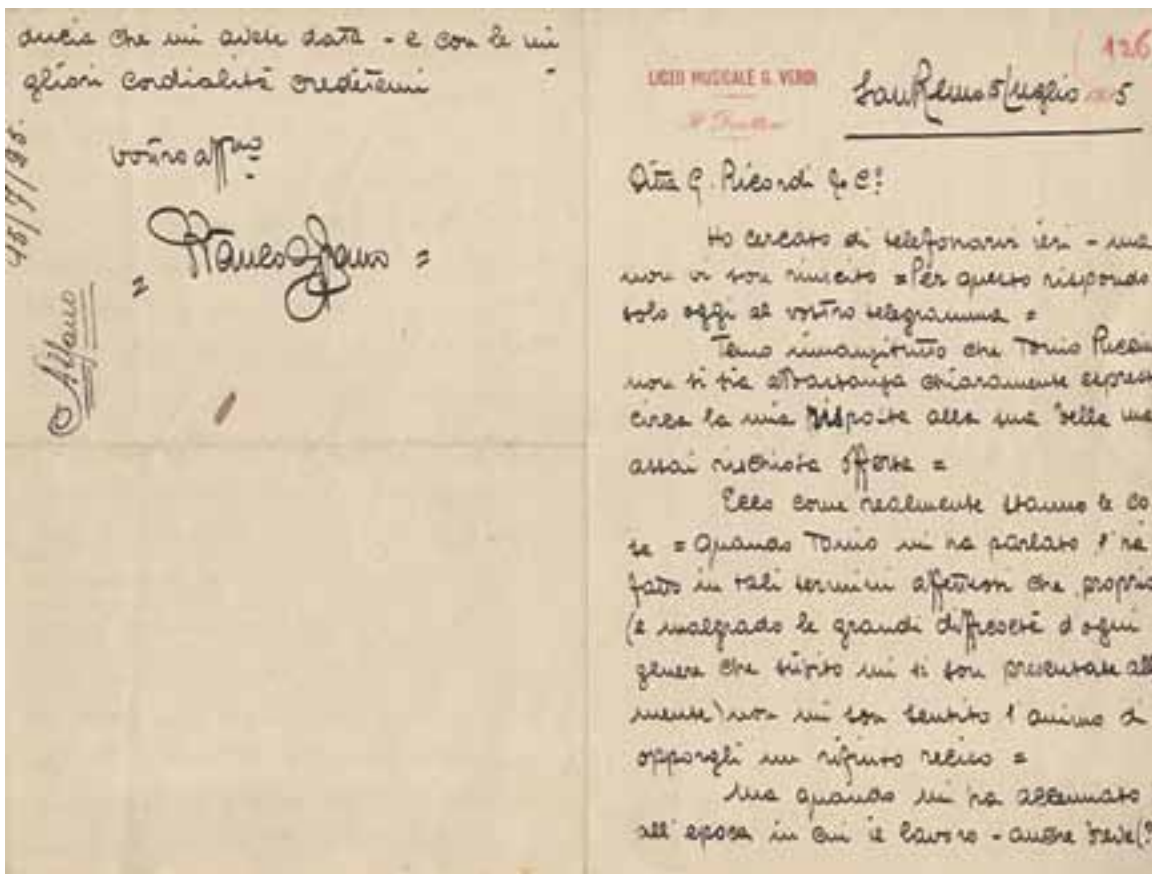 ducia che mi avete data - e con le mi
gliori cordialità credetemi
vostro aff.mo
= Franco Alfano =
Alfano
126
LICEO MUSICALE G. VERDI
San Remo 5 Luglio 5
Ditta G. Ricordi & C.º
Ho cercato di telefonarvi ieri - ma
non vi son riuscito = Per questo rispondo
solo oggi al vostro telegramma =
Temo innanzitutto che Tonio Puccin
non si sia abbastanza chiaramente espress
circa la mia risposta alla sua bella ma
assai rischiosa offerta =
Ecco come realmente stanno le co
se = Quando Tonio mi ha parlato l'ha
fatto in tali termini affettuosi che proprio
(e malgrado le grandi difficoltà d'ogni
genere che subito mi si son presentate all
mente) non mi son sentito l'animo di
opporgli un rifiuto reciso =
Ma quando mi ha accennato
all'epoca in cui il lavoro - anche